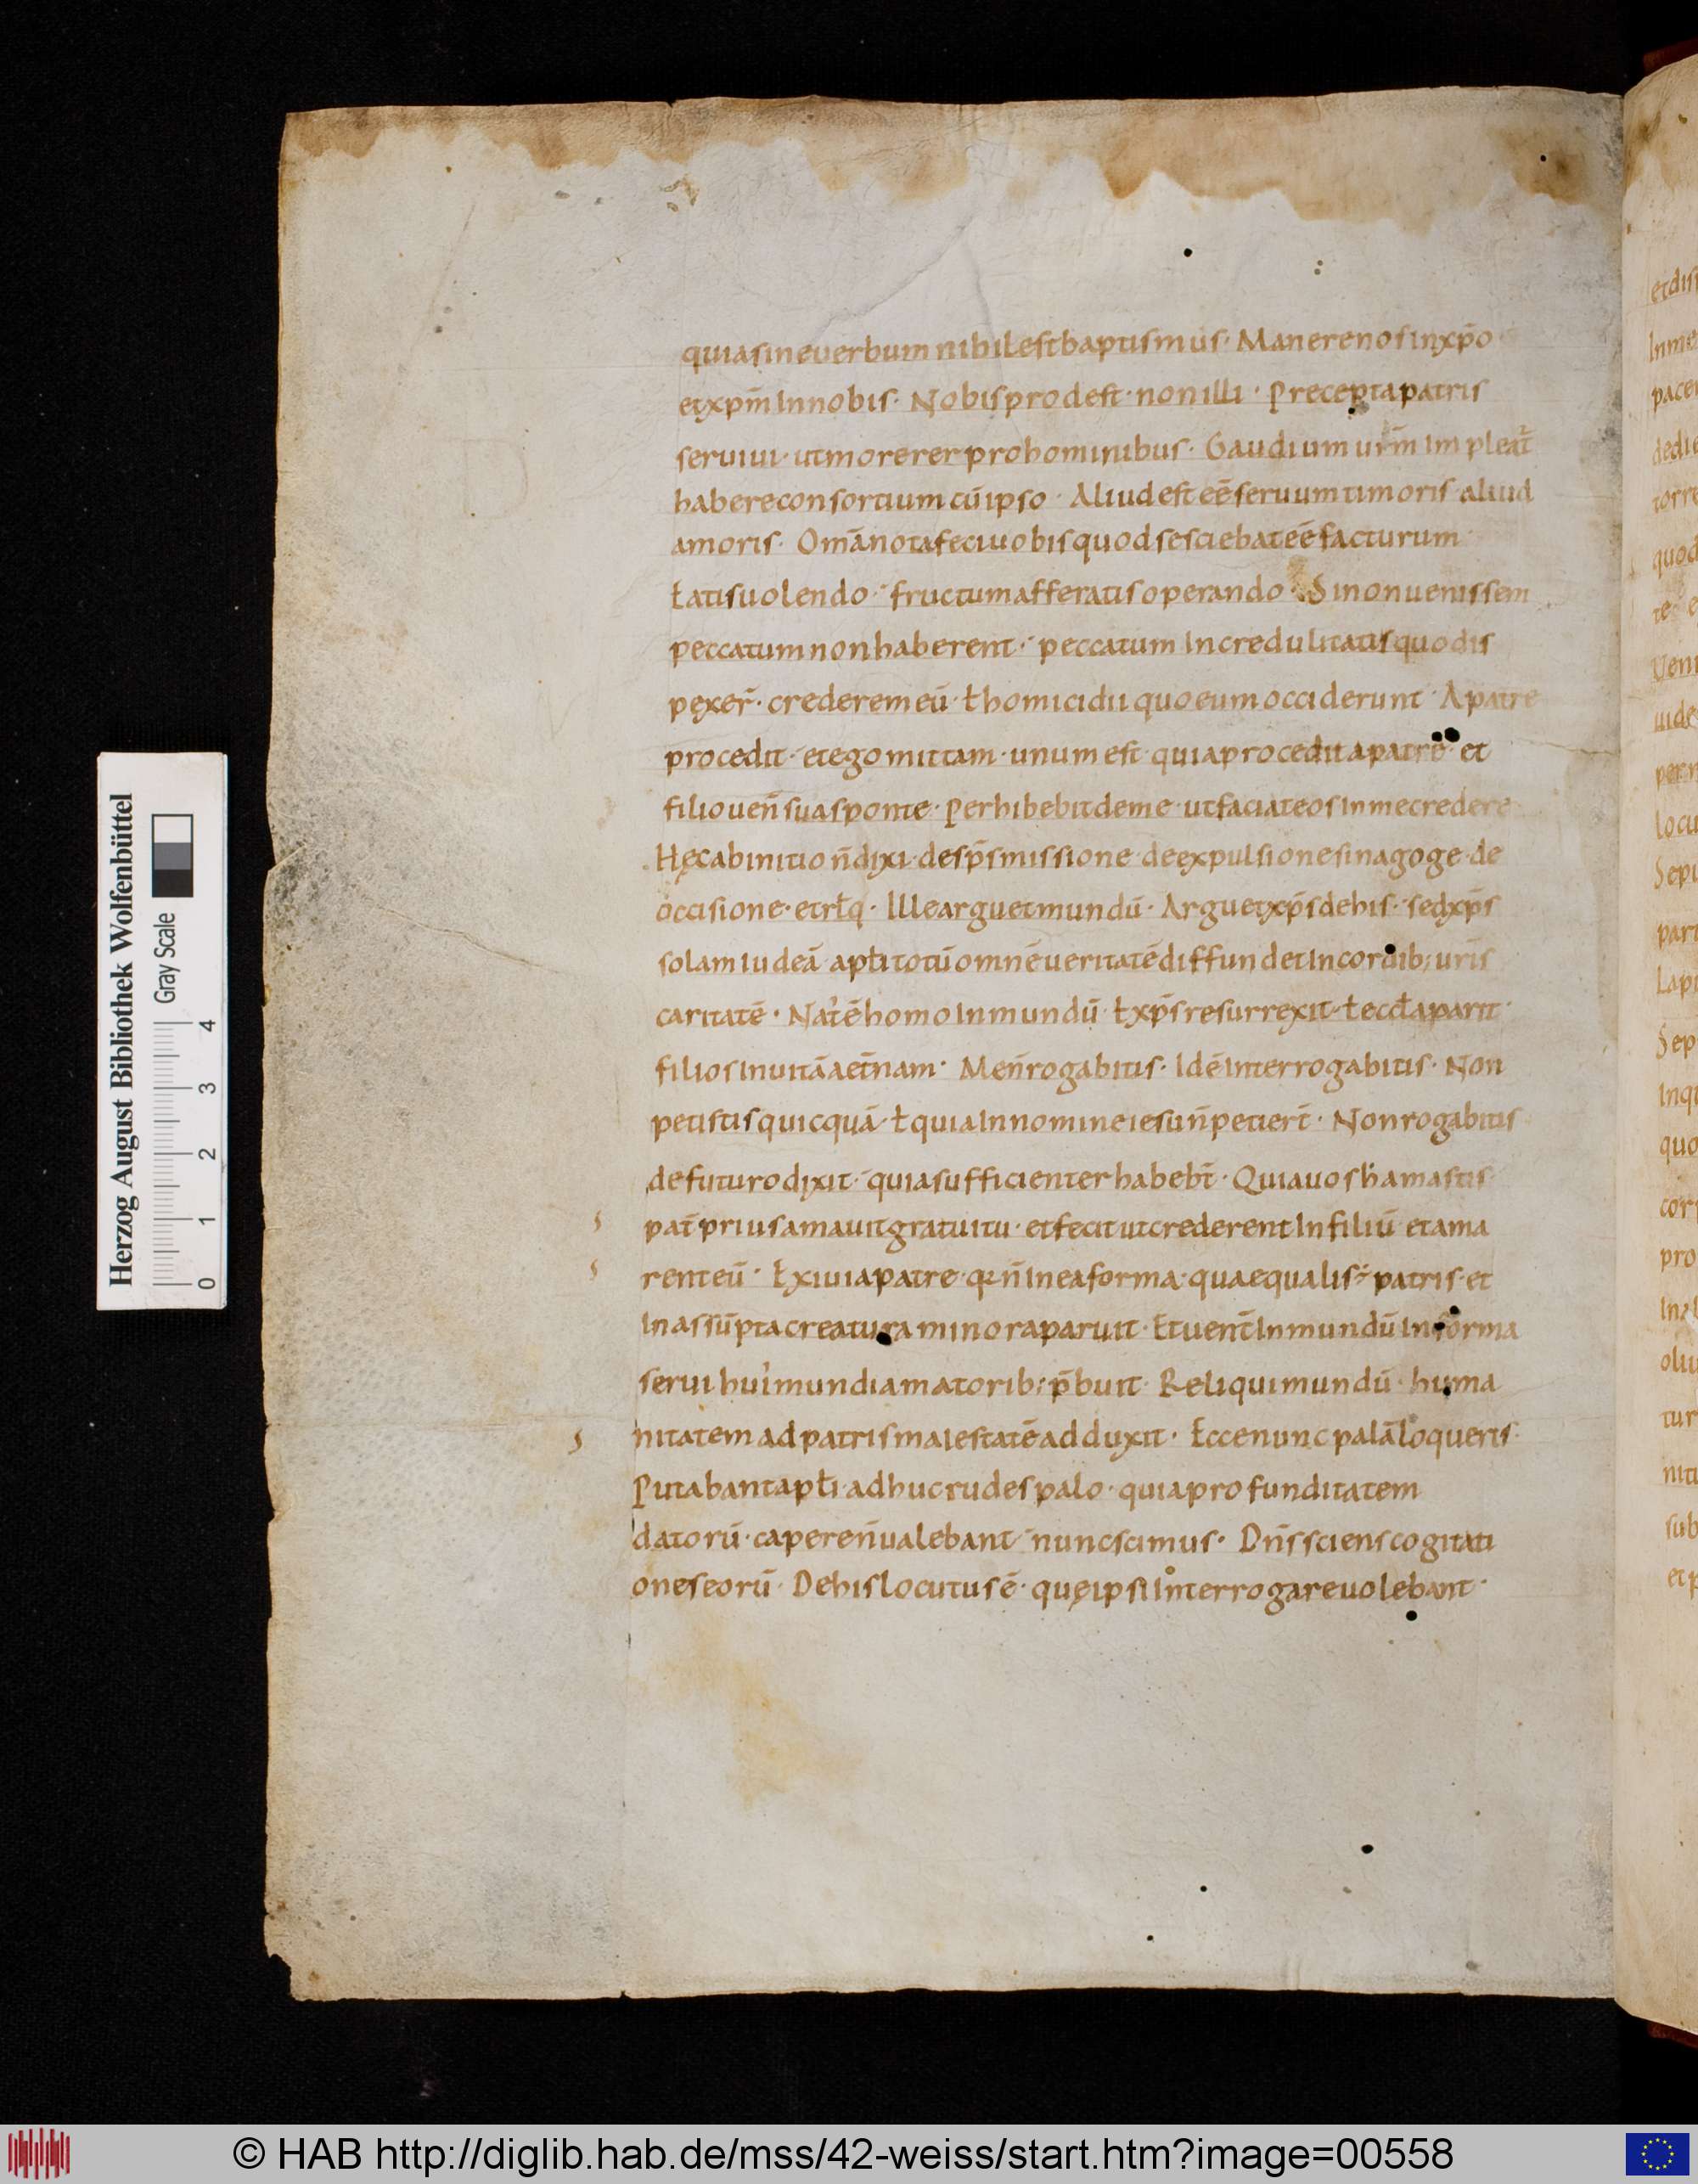 quia sine verbum nihil est baptismus· Manere nos in xp̄o
et xpm̄ In nobis· Nobis prodest· non illi· Precepta patris
seruiui· ut morerer pro hominibus· Gaudium ur̄m Impleat̄
habere consortium cū ipso· Aliud est eē seruum timoris aliud
amoris· Om̄a nota feci uobis quod se sciebat eē facturum
Eatis uolendo· fructum afferatis operando· Si non uenissem
peccatum non haberent· peccatum Incredulitatis quo dis
pexer̄· crederem eū· ł homicidii quo eum occiderunt· A patre
procedit· et ego mittam· unum est· quia procedit a patre· et
filio ueń sua sponte· perhibebit de me· ut faciat eos in me credere
Hęc ab initio n̄ dixi· de sp̄s missione· de expulsione sinagoge· de
occisione· et rł q· Ille arguet mundū· Arguet xp̄s de his· sed xp̄s
solam Iudeā apłi totū omnē ueritatē diffundet In cordib; uris
caritatē· Nat᾽ ē homo In mundū· ł xp̄s resurrexit· ł eccła parit
filios In uitā aet̄nam· Me n̄ rogabitis· Id ē Interrogabitis· Non
petistis quicquā· ł quia In nomine iesu n̄ petiert̄· Non rogabitis
de futuro dixit· quia sufficienter habebt̄· Quia uos h̓ amastis
pat̄ prius amauit gratuitu· et fecit ut crederent In filiū et ama
rent eū· Exiui a patre· qr n̄ In ea forma· qua equalis ÷ patris· et
In assūpta creatura minor aparuit· Et uent̄ In mundū in forma
serui hui᾽ mundi amatorib; p̄buit· Reliqui mundū· huma
nitatem ad patris maiestatē adduxit· Ecce nunc palā loqueris·
Putabant apłi· adhuc rudes palo· quia profunditatem
datorū· capere n̄ ualebant· nunc scimus· Dn̄s sciens cogitati
ones eorū· De his locutus ē· quę ipsi Interrogare uolebant·
Herzog August Bibliothek Wolfenbüttel
Gray Scale
0 1 2 3 4
© HAB http://diglib.hab.de/mss/42-weiss/start.htm?image=00558